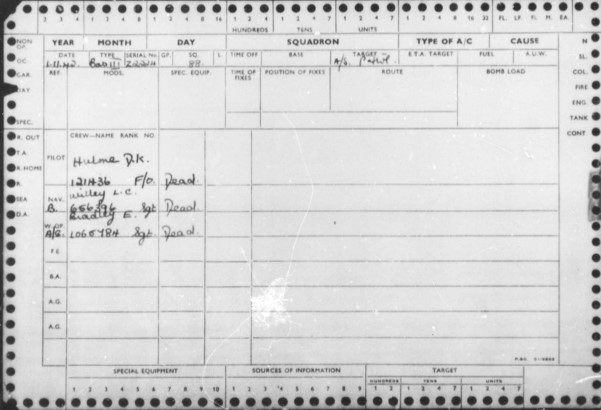 2 4 8 1 2 4 8 1 2 4 8 16 1 2 4 1 2 4 8 1 2 4 8 1 2 4 8 16 32 FL. LF. FL. M. EA.
HUNDREDS TENS UNITS
NON OP. YEAR MONTH DAY SQUADRON TYPE OF A/C CAUSE N
OC DATE TYPE SERIAL No. GP. SQ. L TIME OFF BASE TARGET E.T.A. TARGET FUEL A.U.W. SL.
1.11.42 Bos III Z2224 88. A/S. Patrol
GAR. REF. MODS. SPEC. EQUIP. TIME OF FIXES POSITION OF FIXES ROUTE BOMB LOAD COL.
DAY FIRE
ENG.
SPEC. TANK
R. OUT CREW—NAME RANK NO CONT
T.A.
R HOME PILOT Hulme D.K.
R. 121436 F/O. Dead.
SEA NAV. Willey L.C.
D.A. B. 656396 Sgt Dead.
W.OP. Bradley E.
A/G. 1065784 Sgt. Dead.
F.E.
B.A.
A.G.
A.G.
SPECIAL EQUIPMENT SOURCES OF INFORMATION TARGET
HUNDREDS TENS UNITS
1 2 3 4 5 6 7 8 9 10 1 2 3 4 5 6 7 8 9 1 2 4 1 2 4 8 1 2 4 8